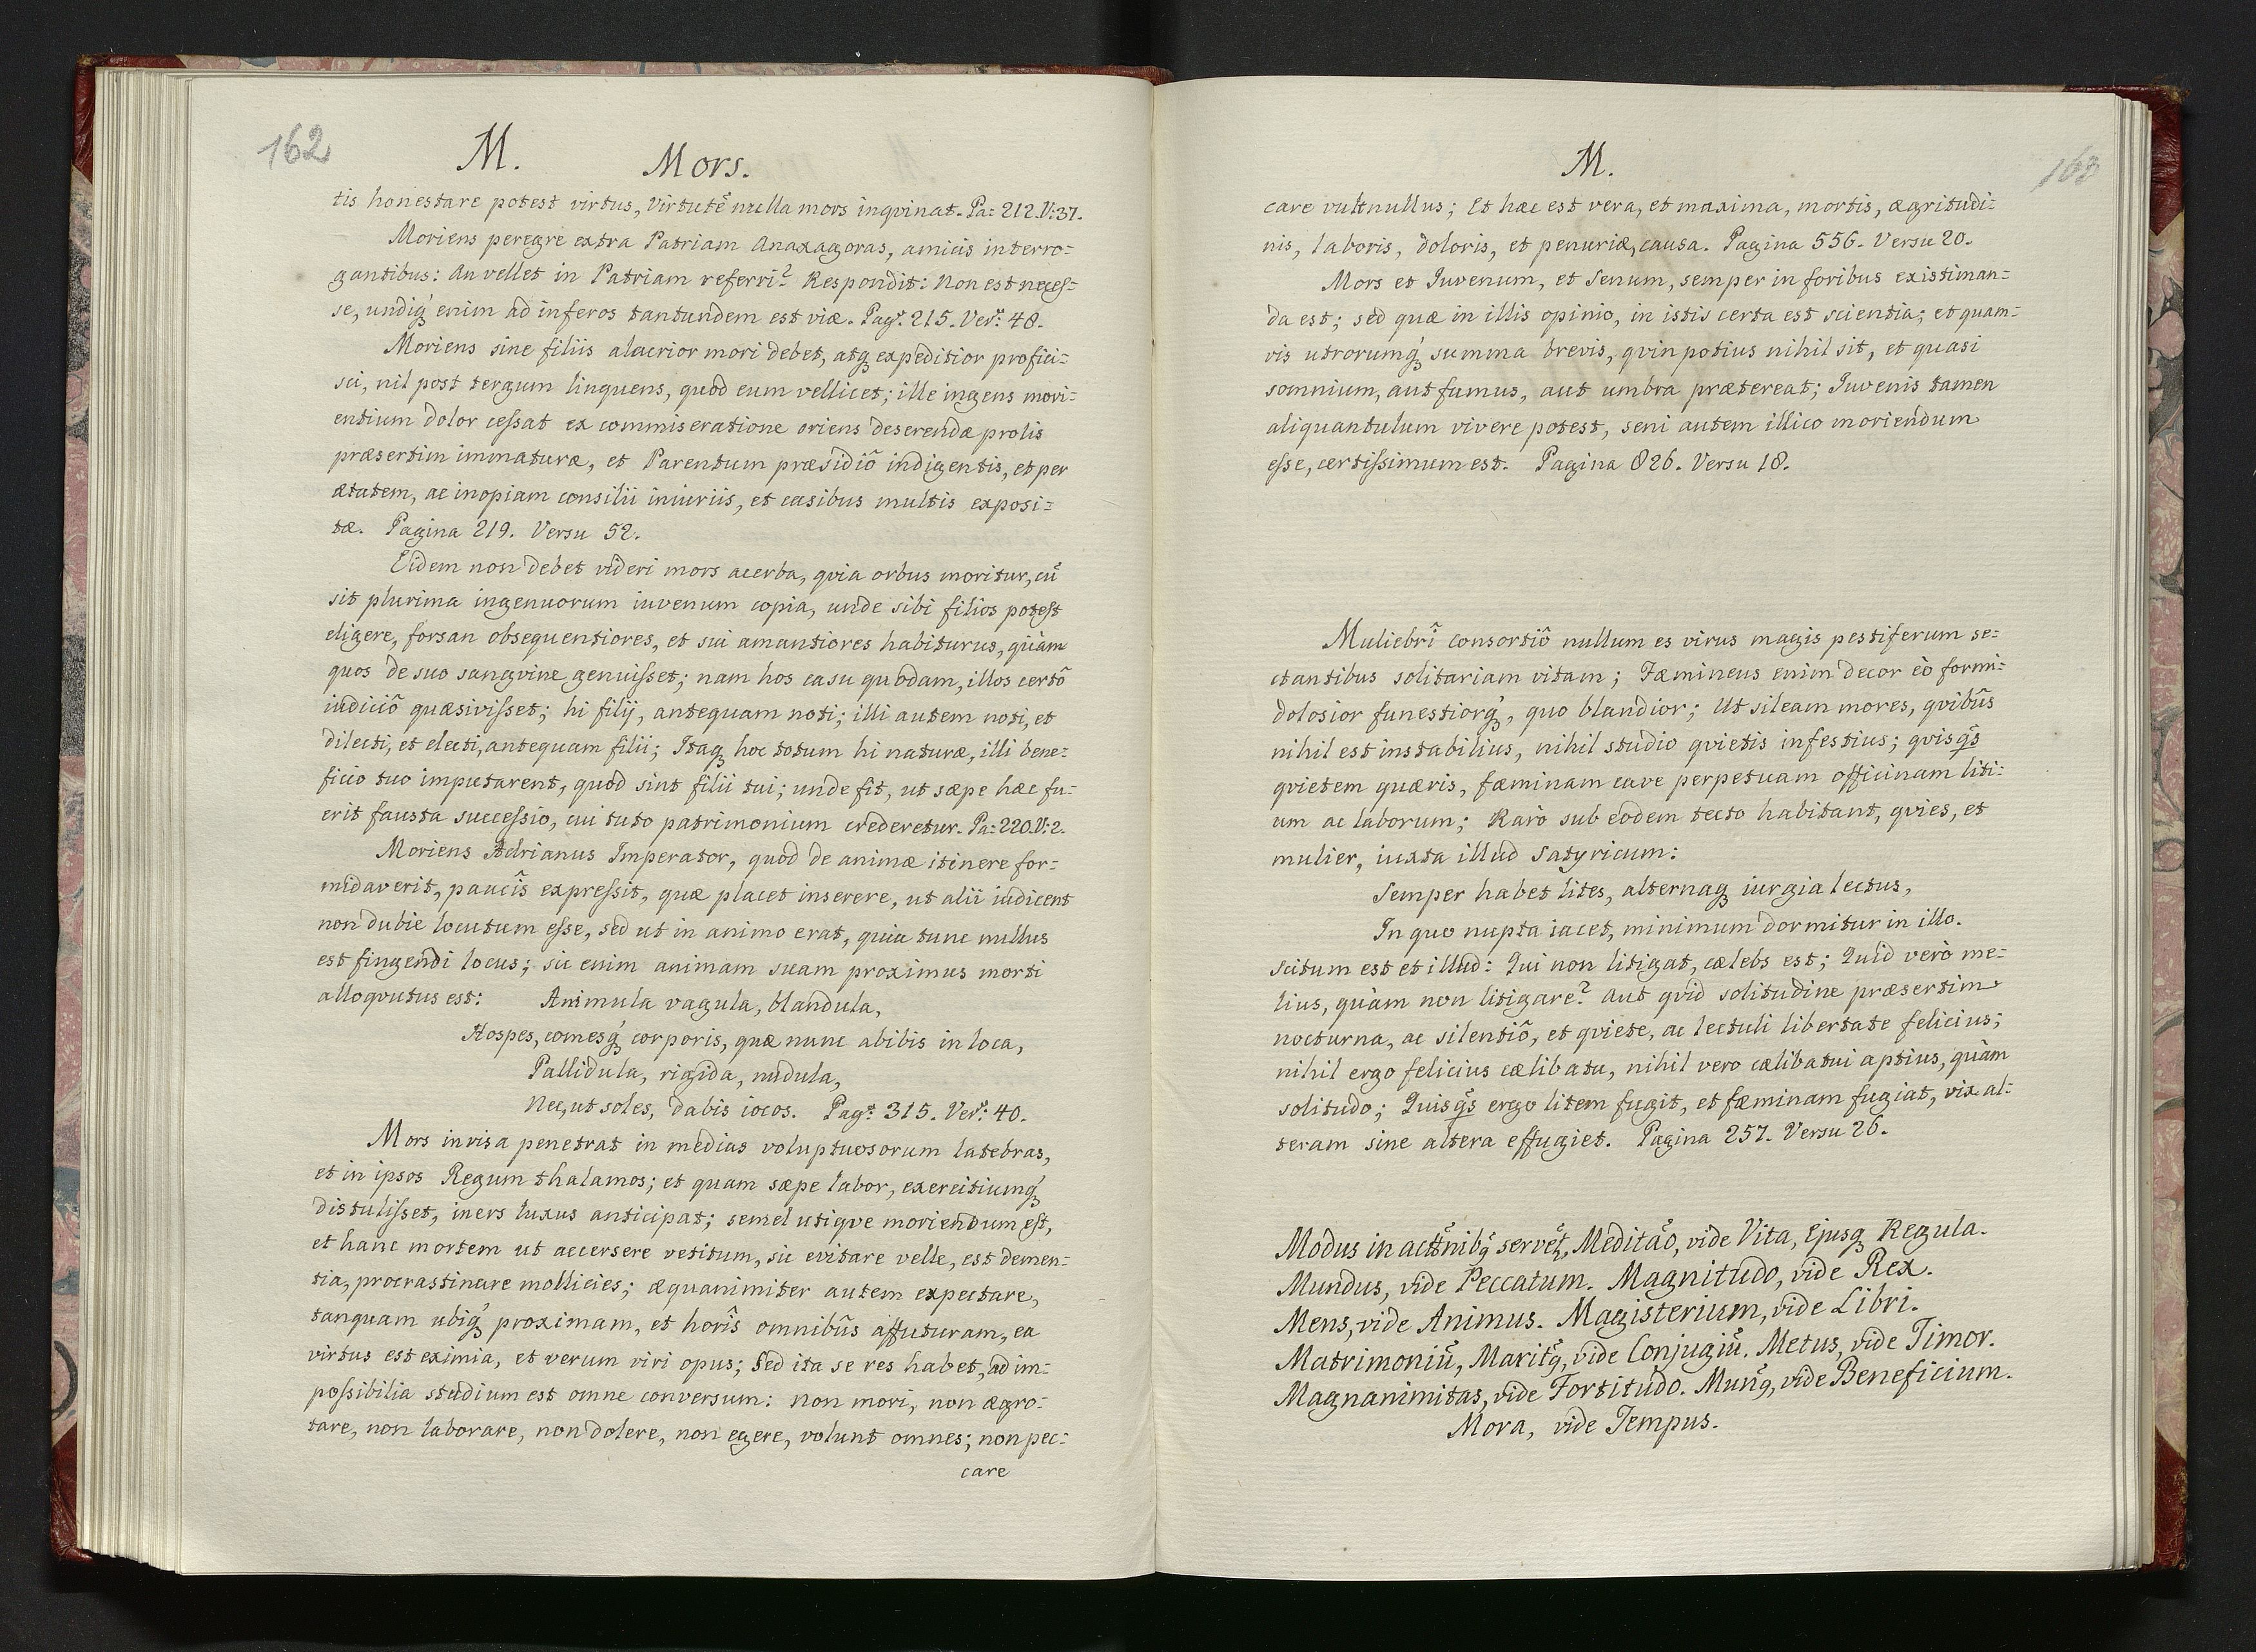 162
M. Mors.
tis honestare potest virtus, Virtutē nulla mors inqvinat. Pa: 212. V: 37.
Moriens peregre extra Patriam Anaxagoras, amicis interro=
gantibus: An vellet in Patriam referri? Respondit: Non est neceſ=
se, undiq́ꝫ enim ad inferos tantundem est viæ. Pagᵃ: 215. Verˢ: 48.
Moriens sine filiis alacrior mori debet, atqꝫ expeditior profici=
sci, nil post tergum linquens, quod eum vellicet; ille ingens mori=
entium dolor ceſsat ex commiseratione oriens deserendæ prolis
præsertim immaturæ, et Parentum præsidiô indigentis, et per
ætatem, ac inopiam consilii iniuriis, et casibus multis exposi=
tæ. Pagina 219. Versu 52.
Eidem non debet videri mors acerba, qvia orbus moritur, cū
sit plurima ingenuorum iuvenum copia, unde sibi filios poteſt
eligere, forsan obsequentiores, et sui amantiores habiturus, quàm
quos de suo sangvine genuiſset; nam hos casu quodam, illos certô
iudiciô quæsiviſset; hi filij, antequam noti; illi autem noti, et
dilecti, et electi, antequam filii; Itaqꝫ hoc totum hi naturæ, illi bene=
ficio tuo imputarent, quod sint filii tui; unde fit, ut sæpe hæc fu=
erit fausta succeſsio, cui tuto patrimonium crederetur. Pa: 220. V: 2.
Moriens Adrianus Imperator, quod de animæ itinere for=
midaverit, paucîs expreſsit, quæ placet inserere, ut alii iudicent
non dubie locutum eſse, sed ut in animo erat, quia tunc nullus
est fingendi locus; sic enim animam suam proximus morti
alloqvutus est: Animula vagula, blandula,
Hospes, comesq́ꝫ corporis, quæ nunc abibis in loca,
Pallidula, rigida, nudula,
Nec, ut soles, dabis iocos. Pagᵃ: 315. Verˢ: 40.
Mors invisa penetrat in medias voluptuosorum latebras,
et in ipsos Regum thalamos; et quam sæpe labor, exercitiumq́ꝫ
distuliſset, iners luxus anticipat; semel utiqve moriendum eſt,
et hanc mortem ut accersere vetitum, sic evitare velle, est demen=
tia, procrastinare mollicies; æquanimiter autem expectare,
tanquam ubiq́ꝫ proximam, et horîs omnibûs affuturam, ea
virtus est eximia, et verum viri opus; Sed ita se res habet, ad im=
poſsibilia studium est omne conversum: non mori, non ægro=
tare, non laborare, non dolere, non egere, volunt omnes; non pec=
care
163
M.
care vult nullus; Et hæc est vera, et maxima, mortis, ægritudi=
nis, laboris, doloris, et penuriæ, causa. Pagina 556. Versu 20.
Mors et Iuvenum, et Senum, semper in foribus existiman=
da est; sed quæ in illis opinio, in istis certa est scientia; et quam=
vis utrorumq́ꝫ summa brevis, qvin potius nihil sit, et quasi
somnium, aut fumus, aut umbra prætereat; Iuvenis tamen
aliquantulum vivere potest, seni autem illico moriendum
eſse, certiſsimum est. Pagina 826. Versu 18.
Muliebrî consortiô nullum es virus magis pestiferum se=
ctantibus solitariam vitam; Fæmineus enim decor eò formi=
dolosior funestiorq́ꝫ, quo blandior; Ut sileam mores, qvibûs
nihil est instabilius, nihil studio qvietis infestius; qvisq̃s
qvietem quæris, fæminam cave perpetuam officinam liti=
um ac laborum; Rarò sub eodem tecto habitant, qvies, et
mulier, iuxta illud Satyricum:
Semper habet lites, alternaqꝫ iurgia lectus,
In quo nupta iacet, minimum dormitur in illo.
Scitum est et illud: Qui non litigat, cælebs est; Quid verò me=
lius, quàm non litigare? Aut qvid solitudine præsertim
nocturna, ac silentiô, et qviete, ac lectuli libertate felicius;
nihil ergo felicius cælibatu, nihil vero cælibatui aptius, quàm
solitudo; Quisq̃s ergo litem fugit, et fæminam fugiat, vix al=
teram sine altera effugiet. Pagina 257. Versu 26.
Mundus, vide Peccatum. Magnitudo, vide Rex.
Mens, vide Animus. Magisterium, vide Libri.
Matrimoniū, Maritꝰ, vide Conjugiū. Metus, vide Timor.
Magnanimitas, vide Fortitudo. Munꝰ, vide Beneficium.
Mora, vide Tempus.